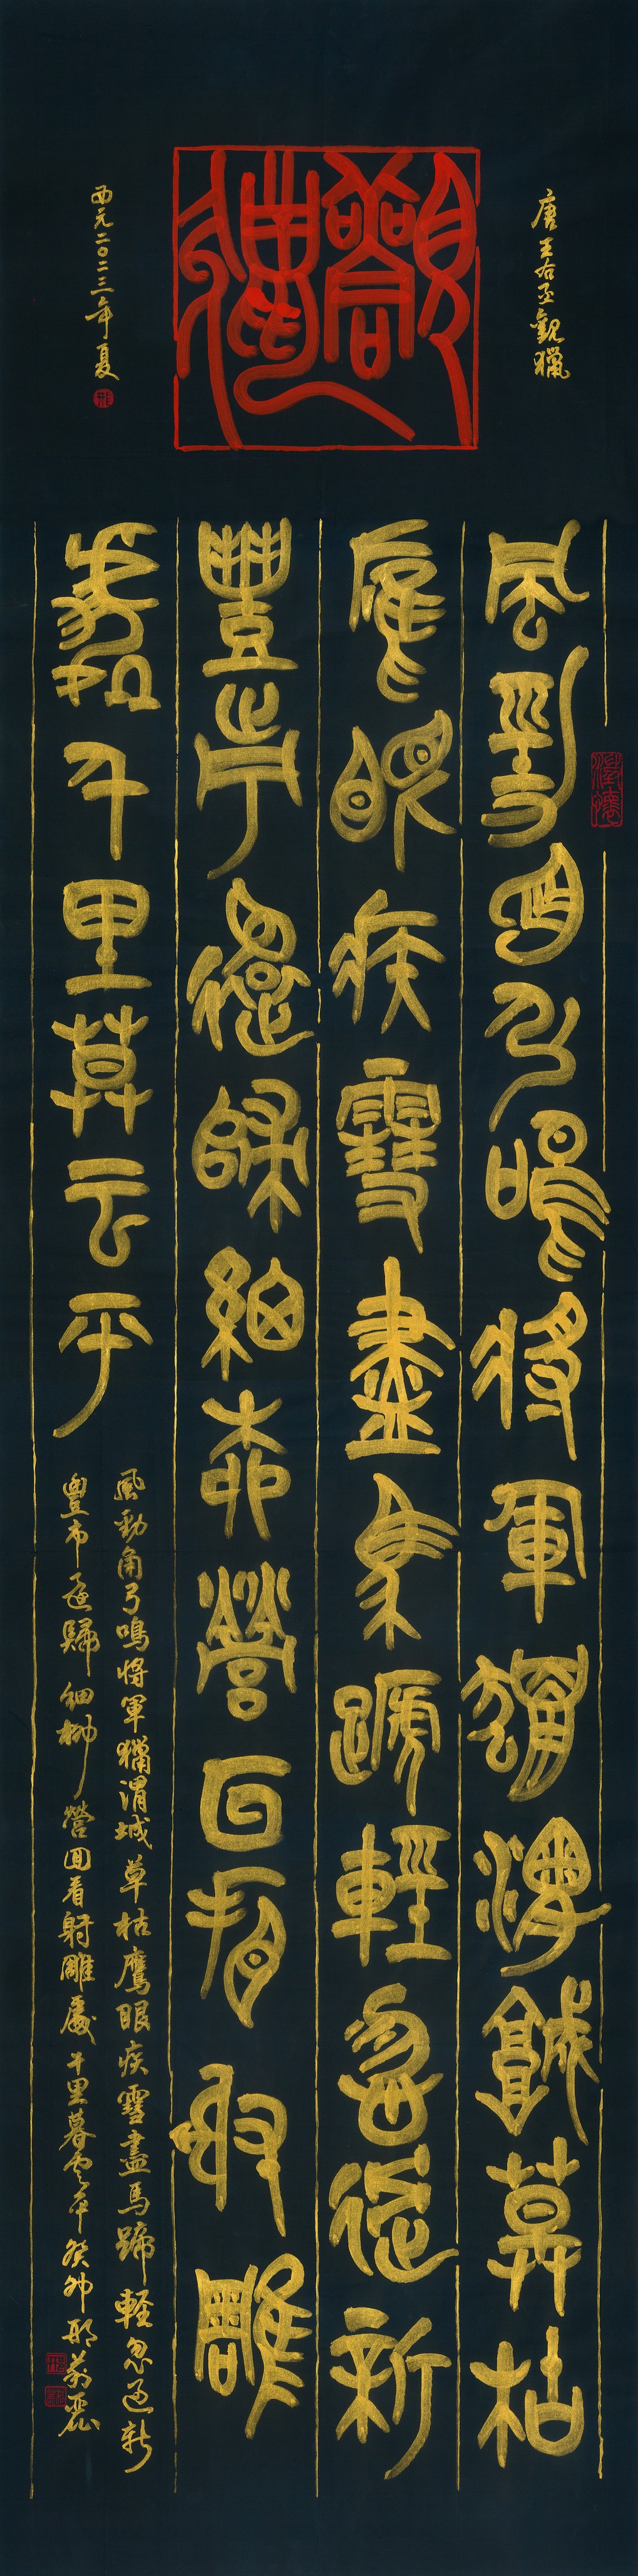 唐王右丞觀獵
觀獵
西元二〇二三年夏
風勁角弓鳴將軍獵渭城草枯
鷹眼疾雪盡馬蹄輕忽過新
豐市還歸細柳營回看射雕
處千里暮云平
風勁角弓鳴將軍獵渭城草枯鷹眼疾雪盡馬蹄輕忽過新
豐市還歸細柳營回看射雕處千里暮雲平癸卯